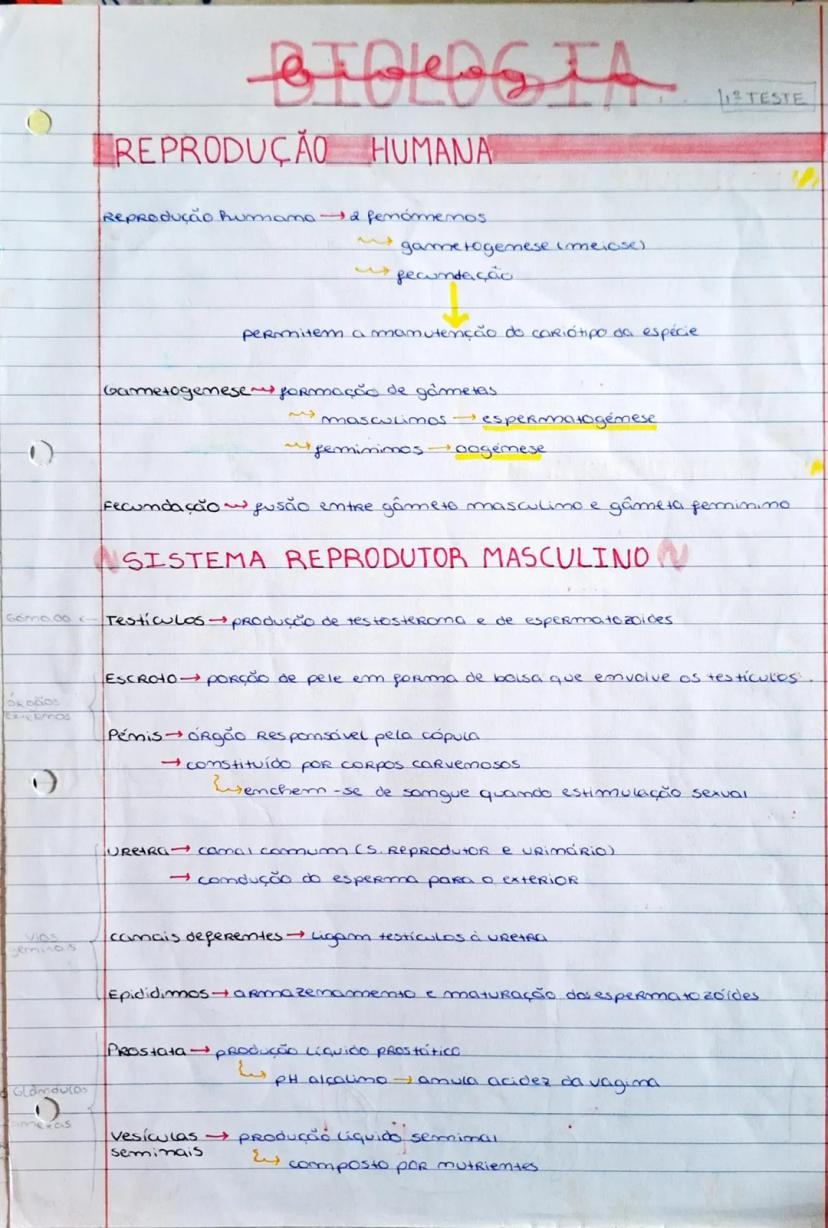 BIOLOGIA
Biologia
1º TESTE
REPRODUÇÃO HUMANA
Reprodução humana → 2 fenómenos
gametogenese (meiose)
fecundação
permitem a manutenção do cariótipo da espécie
Gametogenese → formação de gâmetas
masculinos → espermatogénese
femininos → oogénese
Fecundação → fusão entre gâmeta masculino e gâmeta feminino
SISTEMA REPRODUTOR MASCULINO
Gónada ← Testículos → produção de testosterona e de espermatozoides
Escroto → porção de pele em forma de bolsa que envolve os testículos.
órgãos
externos
Pénis → órgão responsável pela cópula
→ constituído por corpos carvenosos
enchem-se de sangue quando estimulação sexual
Uretra → canal comum (S. Reprodutor e urinário)
→ condução do esperma para o exterior
vias
seminais
canais deferentes → ligam testículos à uretra
Epididimos → armazenamento e maturação dos espermatozóides
Prostata → produção líquido prostático
pH alcalino → anula acidez da vagina
Glândulas
anexas
Vesículas → produção líquido seminal
seminais
composto por nutrientes